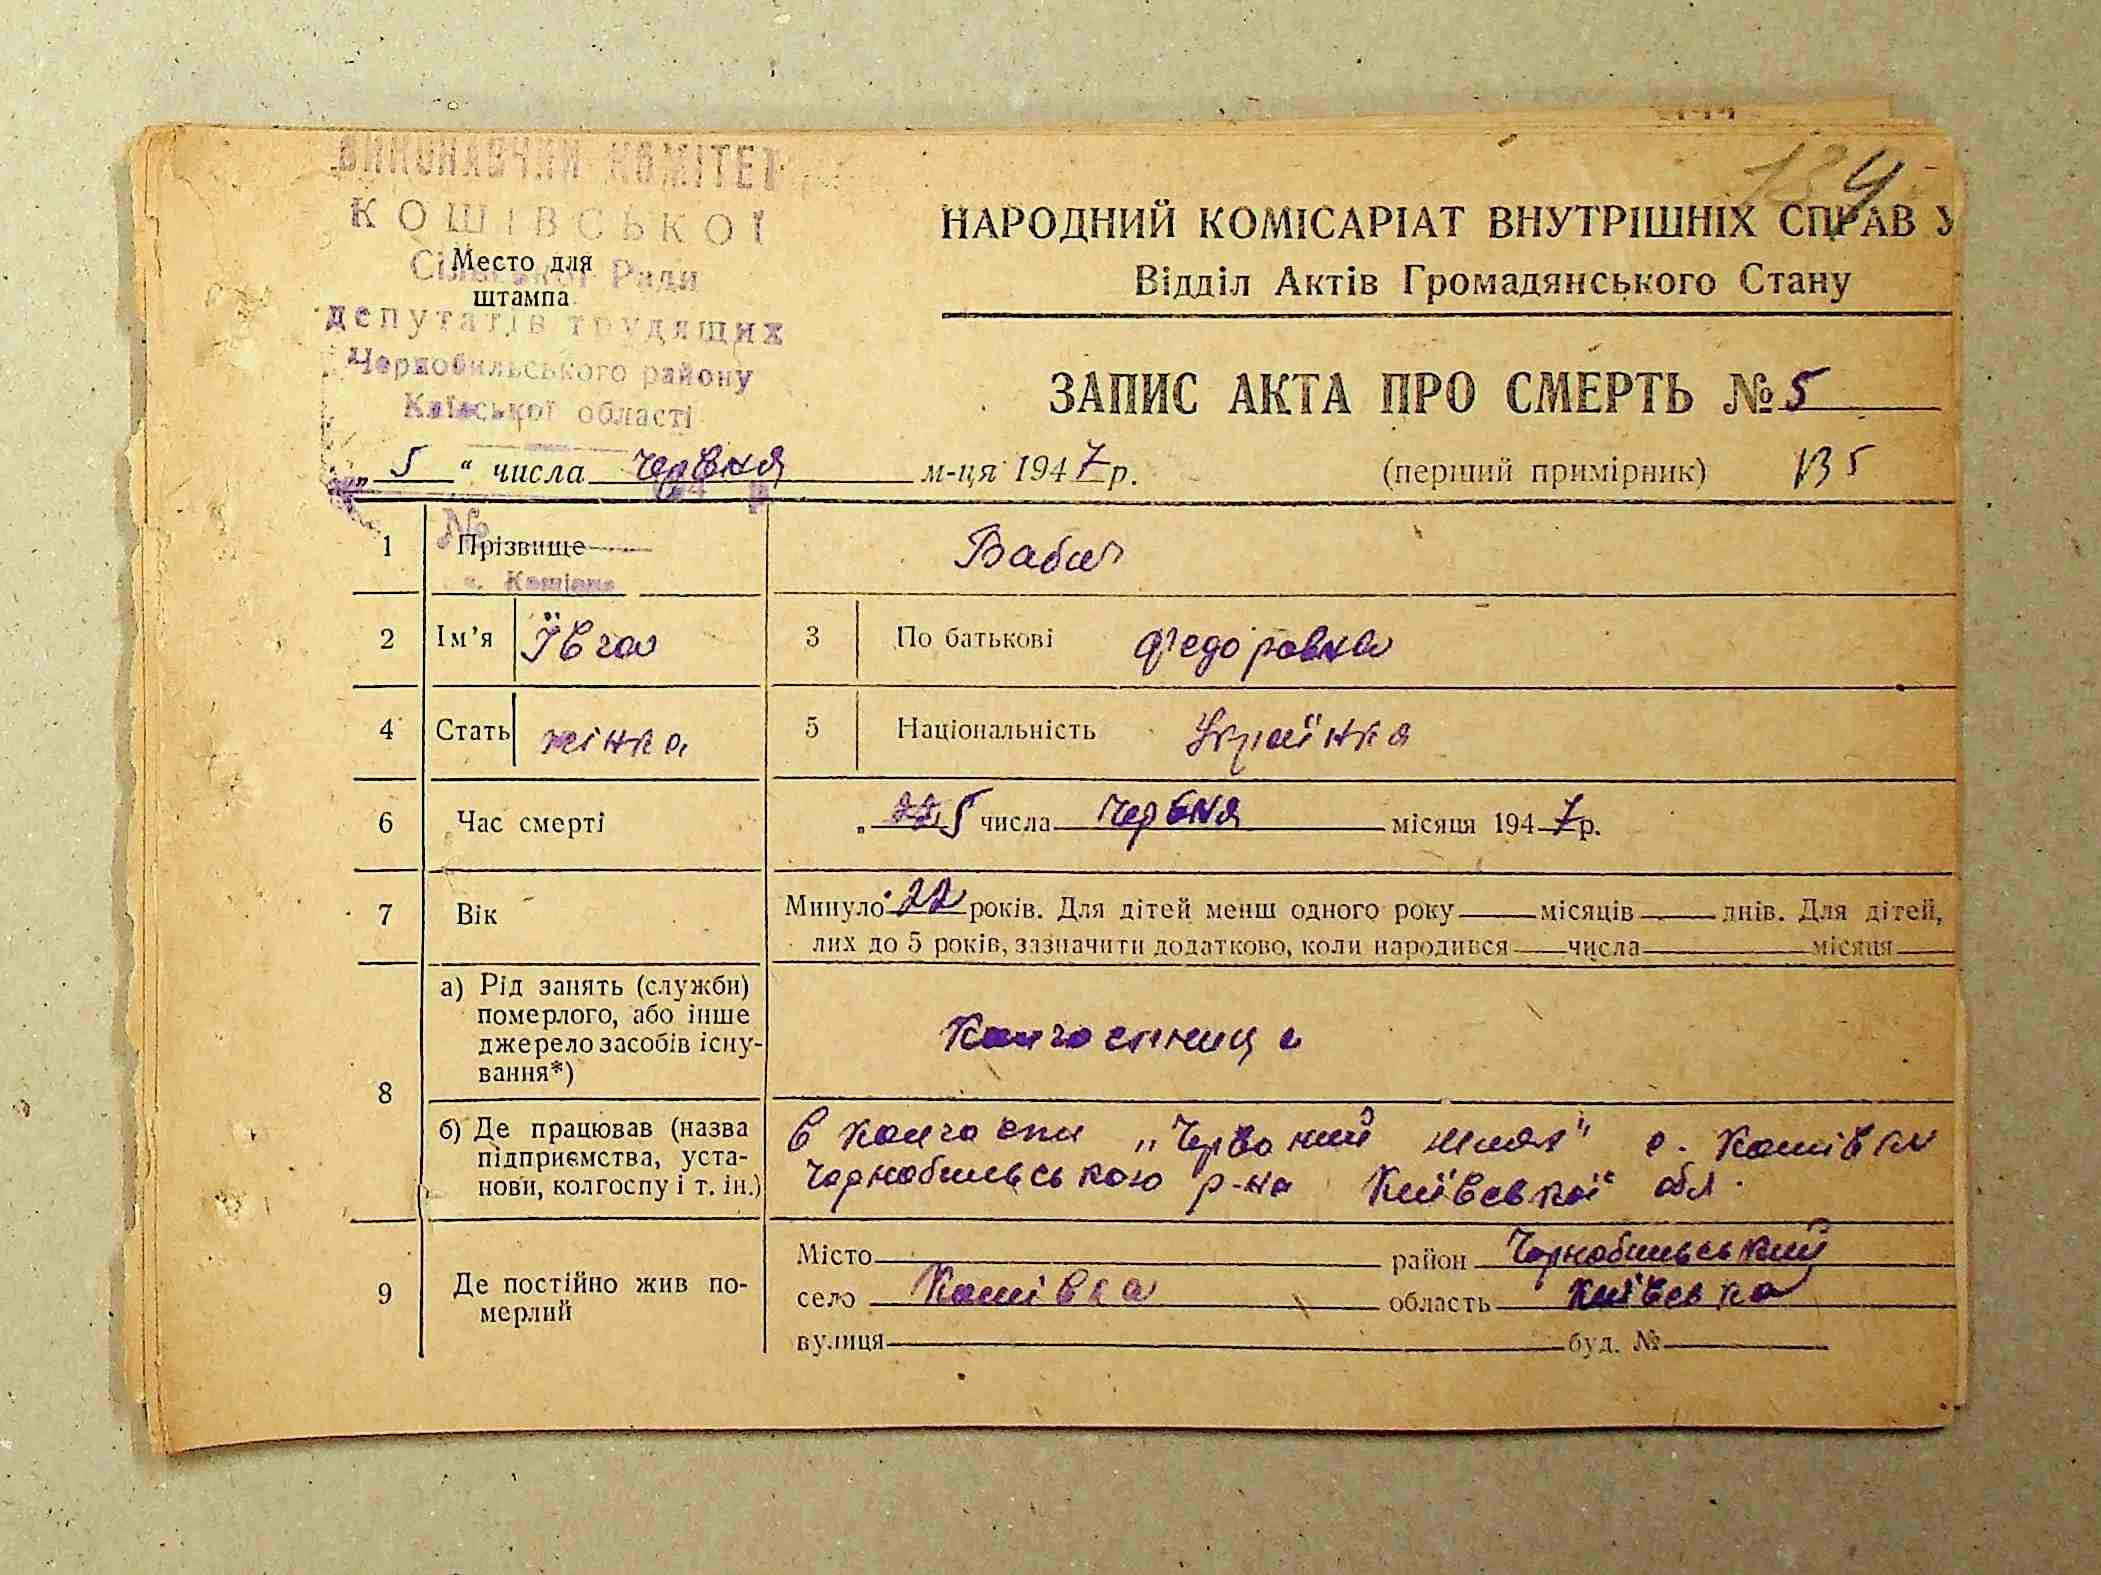 134
ВИКОНАВЧИЙ КОМІТЕТ
КОШІВСЬКОЇ
Сільської Ради
депутатів трудящих
Чернобильського району
Київської області
Место для
штампа
НАРОДНИЙ КОМІСАРІАТ ВНУТРІШНІХ СПРАВ У
Відділ Актів Громадянського Стану
ЗАПИС АКТА ПРО СМЕРТЬ № 5
„ 5 “ числа червня м-ця 1947 р.
(перший примірник) 135
№
1 Прізвище Бабич
с. Кошівка
2 Ім’я Ївга 3 По батькові Федоровна
4 Стать жінка 5 Національність Українка
6 Час смерті „ 22 5 числа червня місяця 1947 р.
7 Вік Минуло 22 років. Для дітей менш одного року місяців днів. Для дітей,
лих до 5 років, зазначити додатково, коли народився числа місяця
8 а) Рід занять (служби)
померлого, або інше
джерело засобів існу-
вання*)
Колгоспница
б) Де працював (назва
підприємства, уста-
нови, колгоспу і т. ін.)
в колгоспи „Червоний шлях" с. Кошівки
Чорнобильською р-на Київської обл.
9 Де постійно жив по-
мерлий
Місто район Чорнобильський
село Кошівка область Київська
вулиця буд. №